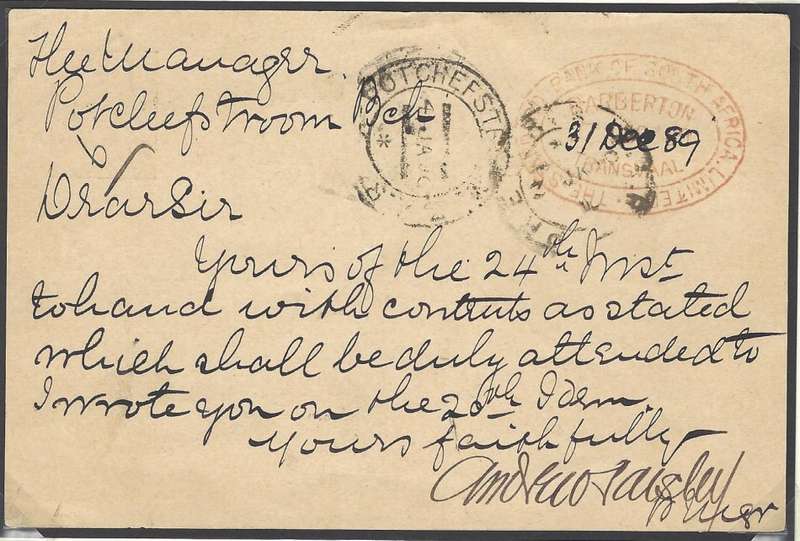 The Manager
Potchefstroom Bch
Dear Sir
Yours of the 24th Inst
to hand with contents as stated
which shall be duly attended to
I wrote you on the 20th Idem
Yours faithfully
Andrew
THE STANDARD BANK OF SOUTH AFRICA LIMITED
BARBERTON
31 Dec 89
TRANSVAAL
POTCHEFST